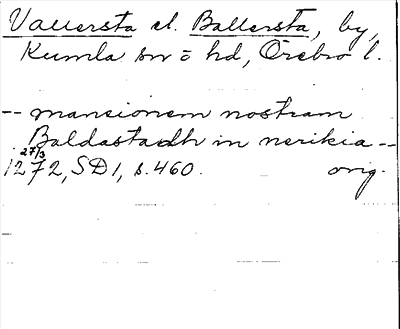 Vallersta el. Ballersta, by,
Kumla sn o hd, Örebro l.
-- mansionem nostram
Baldastadh in nerikia --
27/3
1272, SD1, s. 460. orig.